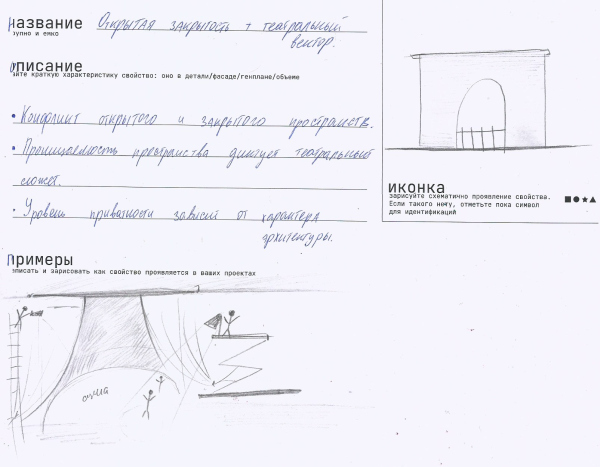 название Открытая закрытость + театральный
вектор.
упно и емко
описание
йте краткую характеристику свойство: оно в детали/фасаде/генплане/объеме
• Конфликт открытого и закрытого пространств.
• Проницаемость пространства диктует театральный
сюжет.
• Уровень приватности зависит от характера
архитектуры.
иконка
зарисуйте схематично проявление свойства.
Если такого нему, отметьте пока символ
для идентификаций
примеры
описать и зарисовать как свойство проявляется в ваших проектах